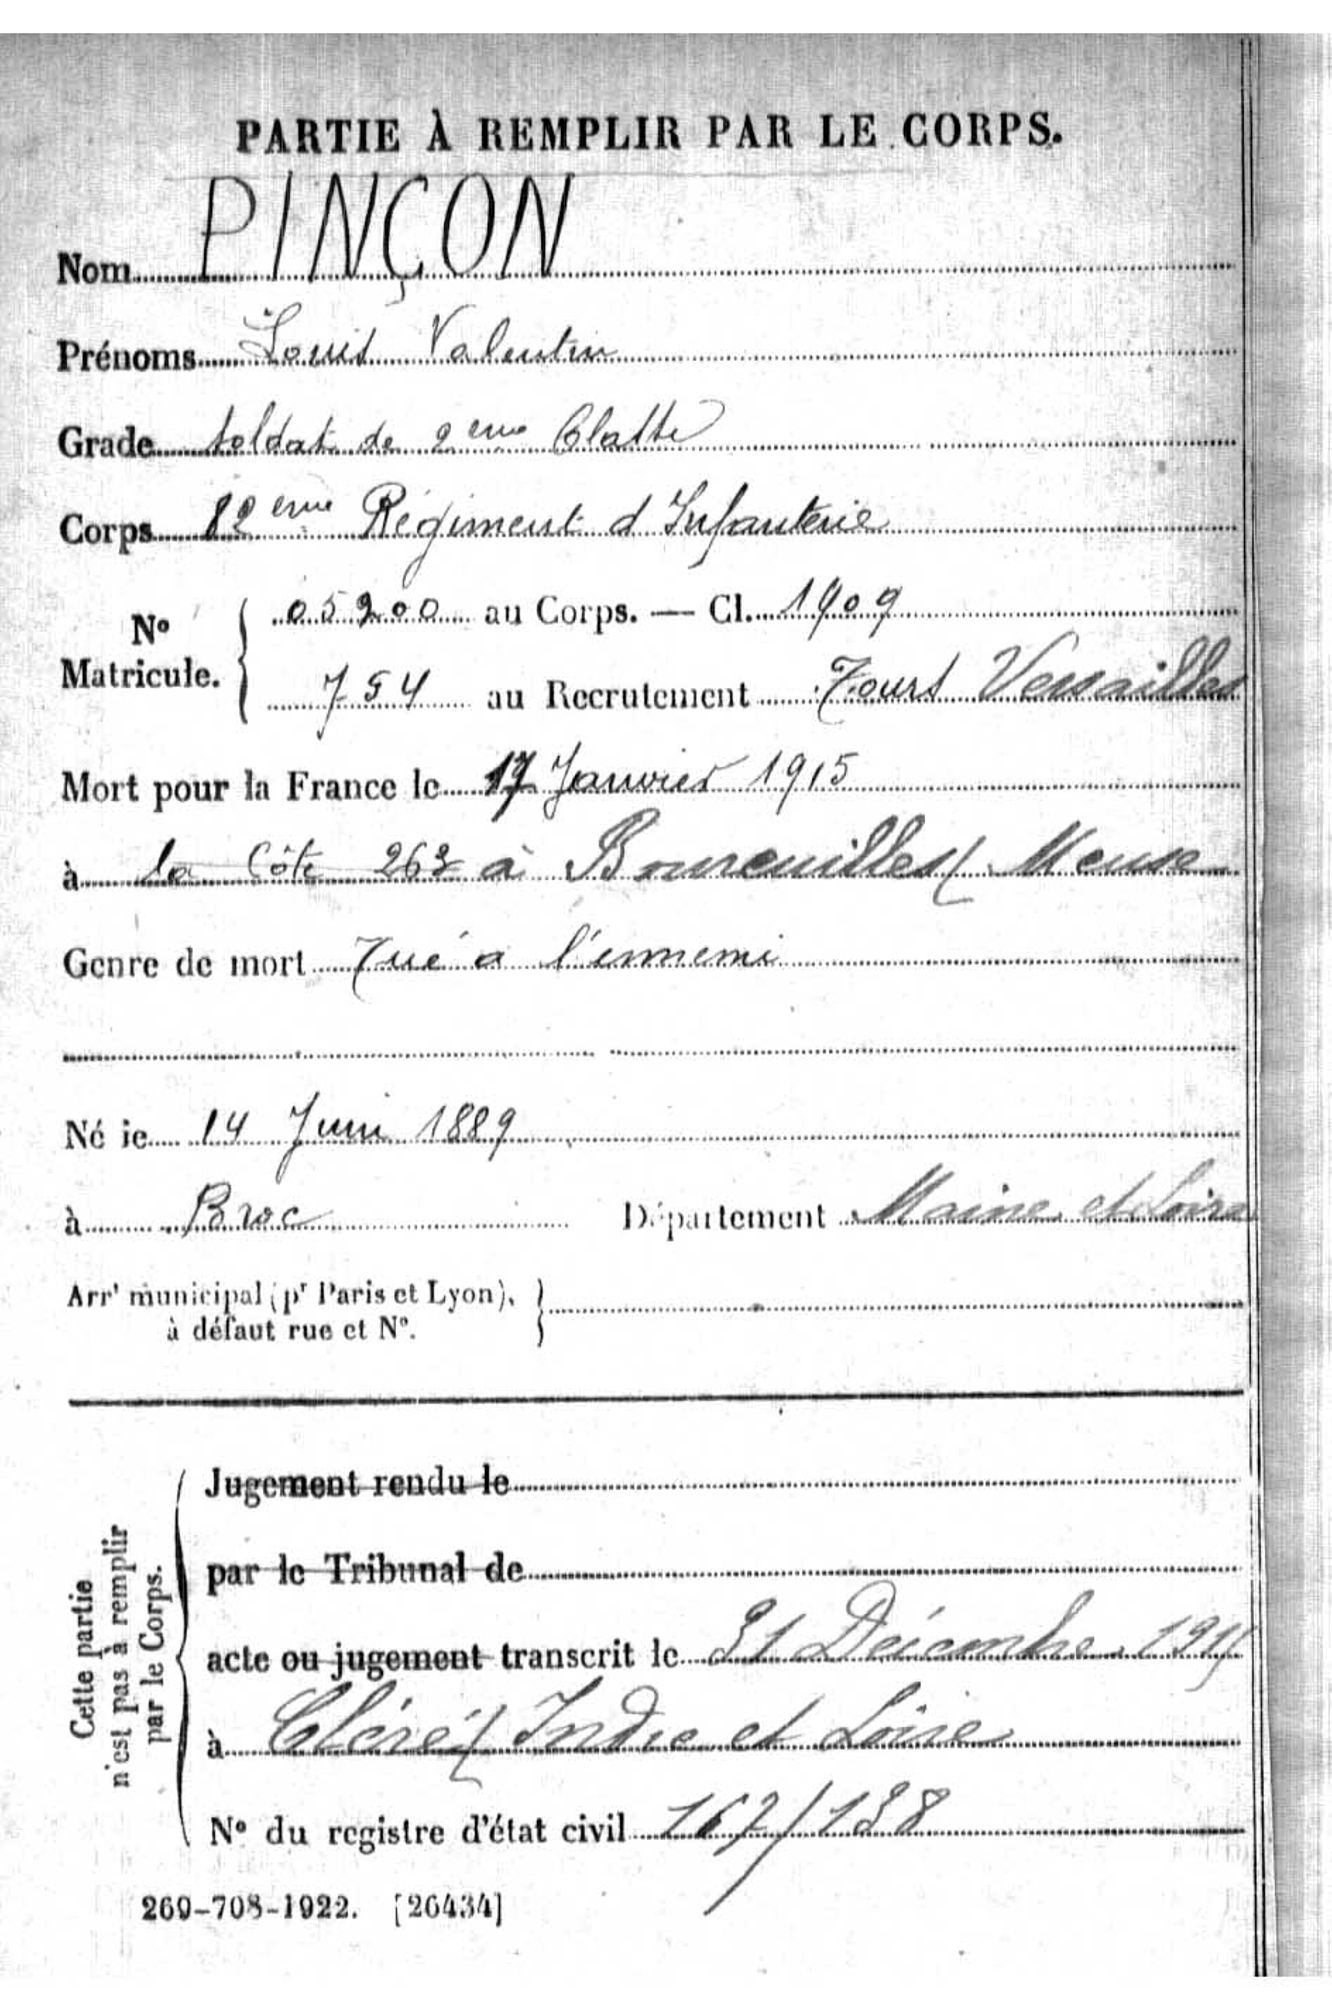 PARTIE À REMPLIR PAR LE CORPS.
Nom PINÇON
Prénoms Louis Valentin
Grade soldat de 2eme Classe
Corps 82eme Régiment d'Infanterie
N° Matricule. { 05200 au Corps. — Cl. 1909
754 au Recrutement Tours Versailles
Mort pour la France le 17 Janvier 1915
à la Côte 263 à Boureuilles/ Meuse
Genre de mort Tué a l'ennemi
Né le 14 Juin 1889
à Broc Département Maine et Loire
Arrt municipal (pr Paris et Lyon), }
à défaut rue et N°.
Cette partie
n'est pas à remplir
par le Corps.
Jugement rendu le
par le Tribunal de
acte ou jugement transcrit le 31 Décembre 1915
à Cléré/ Indre et Loire
N° du registre d'état civil 167/138
269-708-1922. [26434]